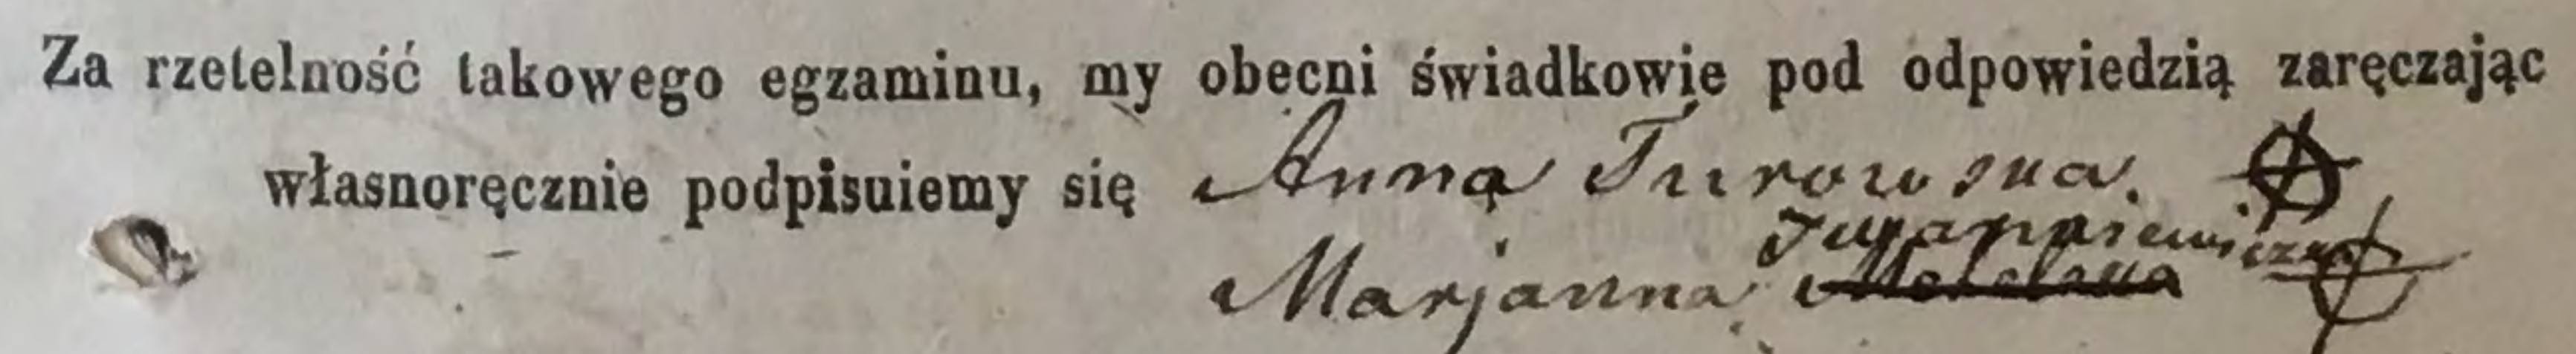 Za rzetelność takowego egzaminu, my obecni świadkowie pod odpowiedzią zaręczając
własnoręcznie podpisuiemy się Anna Turowska.
Marjanna